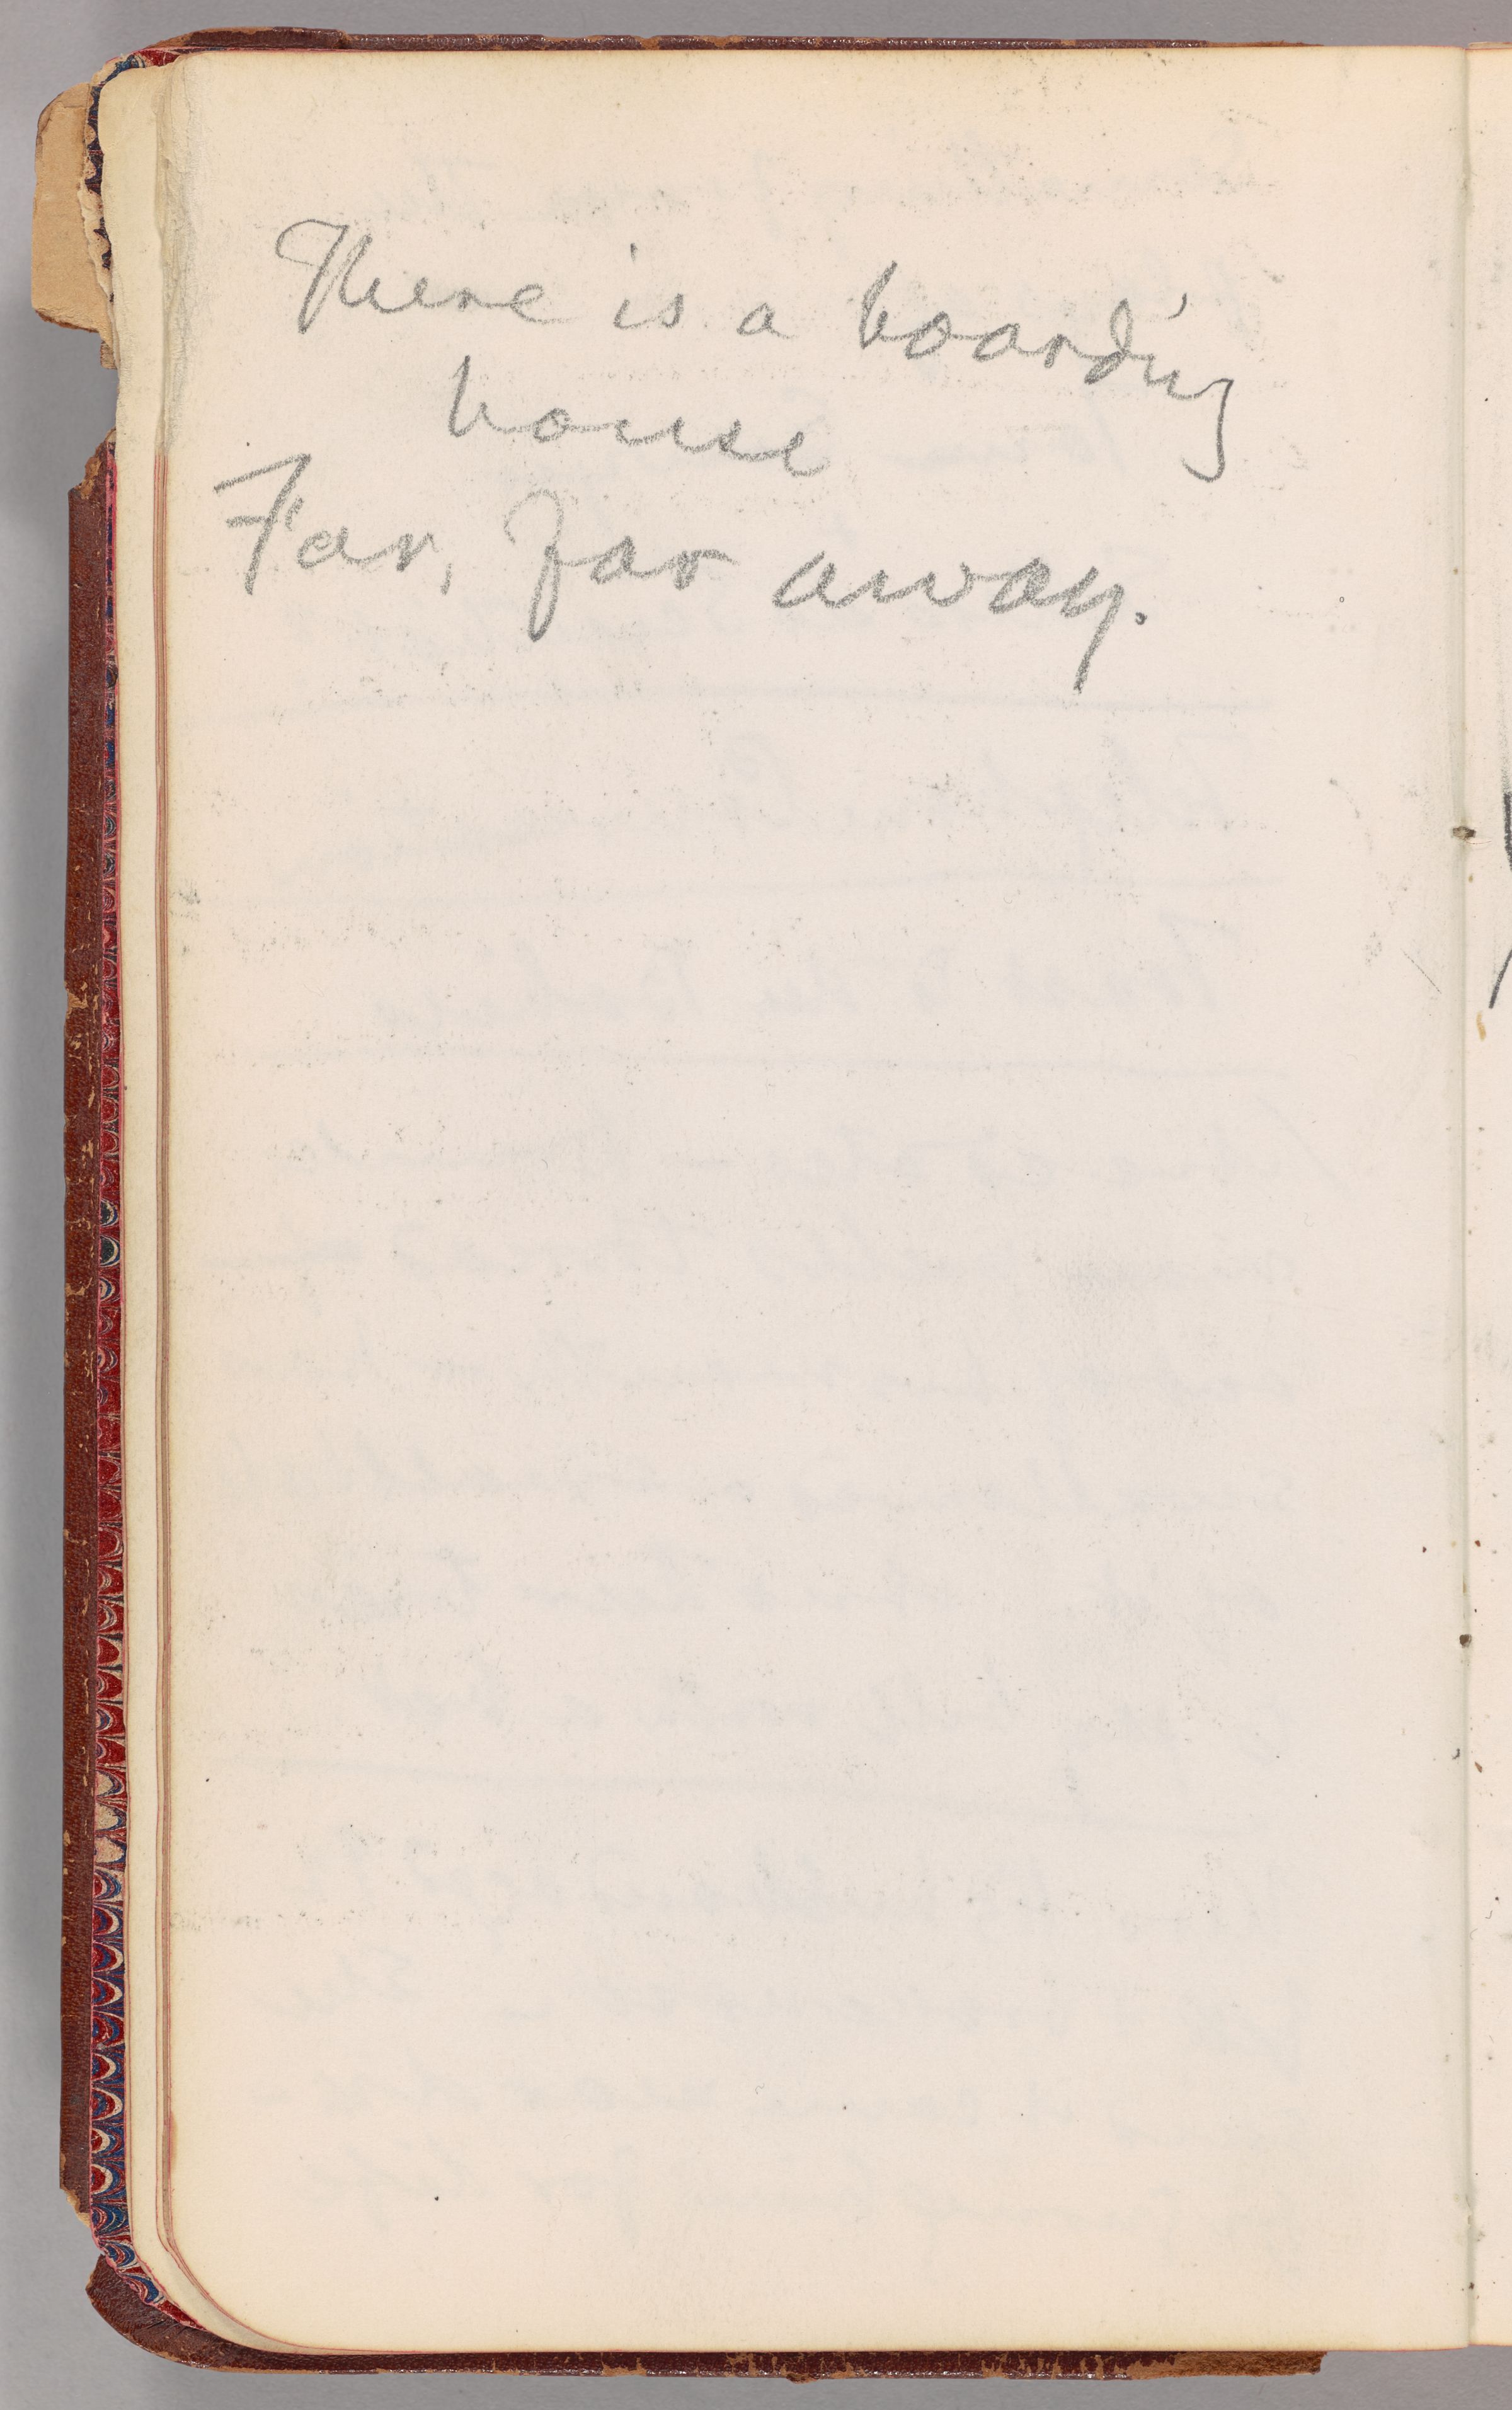 There is a boarding
house
Far, far away.